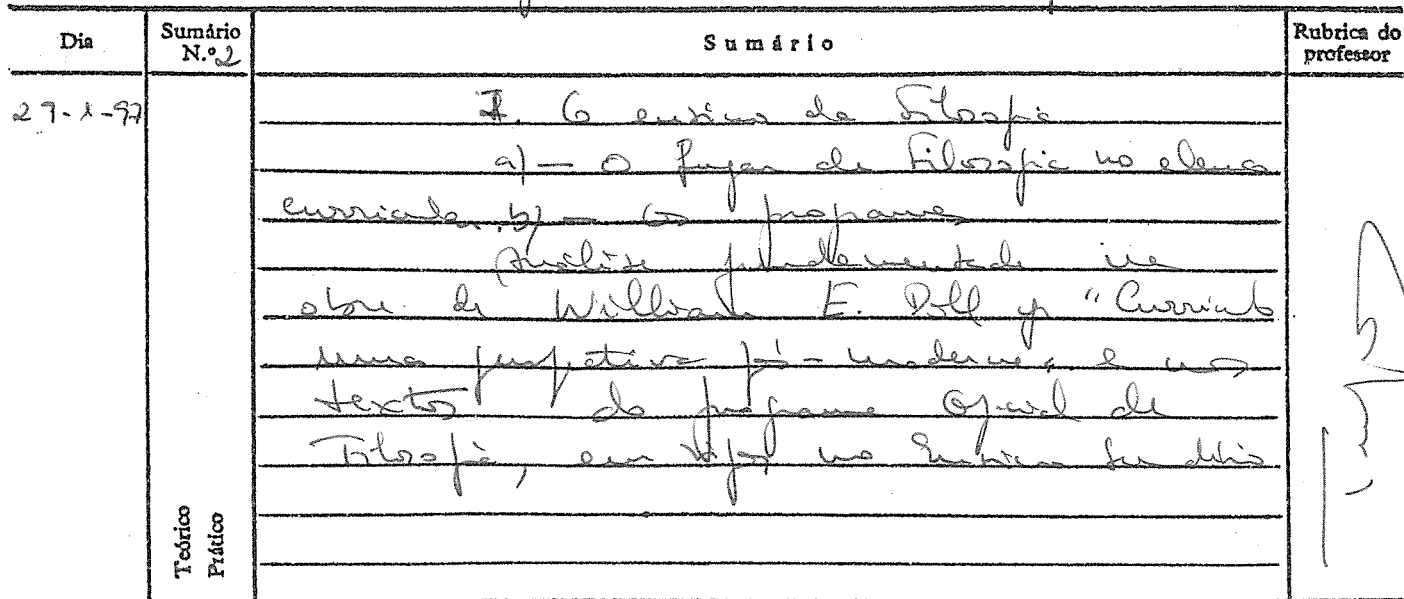 Dia
Sumário N.º 2
Sumário
Rubrica do professor
29-1-97
I. O ensino da Filosofia
a) — O lugar da Filosofia no elenco
curricular. b) — Os programas
Análise fundamentada na
obra de William E. Doll Jr "Currículo
uma perspetiva pós-moderna" e nos
textos do programa Oficial de
Filosofia, em vigor no Ensino Secundário
Teórico
Prático